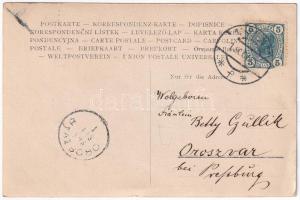 POSTKARTE — KORRESPONDENZ-KARTE — DOPISNICE
KORESPONDENČNÍ LÍSTEK — LEVELEZŐ-LAP — KARTA
PONDENCYJNA — CARTE POSTALE — POSTCARD —
POSTALE — BRIEFKAART — BREFKORT —
— WELTPOSTVEREIN — UNION POSTALE UNIVERSE
Nur für die Adresse
5 5
Wolgeboren
Fräulein
Betty Gullik
Oroszvar
bei Preßburg
OROSZVÁR